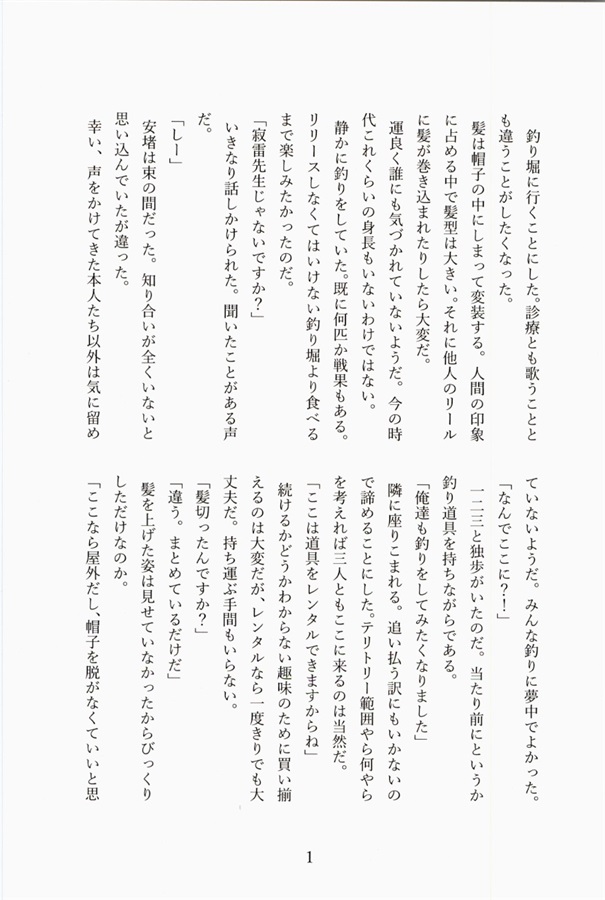 釣り堀に行くことにした。診療とも歌うことと
も違うことがしたくなった。
髪は帽子の中にしまって変装する。人間の印象
に占める中で髪型は大きい。それに他人のリール
に髪が巻き込まれたりしたら大変だ。
運良く誰にも気づかれていないようだ。今の時
代これくらいの身長もいないわけではない。
静かに釣りをしていた。既に何匹か戦果もある。
リリースしなくてはいけない釣り堀より食べる
まで楽しみたかったのだ。
「寂雷先生じゃないですか?」
いきなり話しかけられた。聞いたことがある声
だ。
「しー」
安堵は束の間だった。知り合いが全くいないと
思い込んでいたが違った。
幸い、声をかけてきた本人たち以外は気に留め
ていないようだ。みんな釣りに夢中でよかった。
「なんでここに?!」
一二三と独歩がいたのだ。当たり前にというか
釣り道具を持ちながらである。
「俺達も釣りをしてみたくなりました」
隣に座りこまれる。追い払う訳にもいかないの
で諦めることにした。テリトリー範囲やら何やら
を考えれば三人ともここに来るのは当然だ。
「ここは道具をレンタルできますからね」
続けるかどうかわからない趣味のために買い揃
えるのは大変だが、レンタルなら一度きりでも大
丈夫だ。持ち運ぶ手間もいらない。
「髪切ったんですか?」
「違う。まとめているだけだ」
髪を上げた姿は見せていなかったからびっくり
しただけなのか。
「ここなら屋外だし、帽子を脱がなくていいと思
1